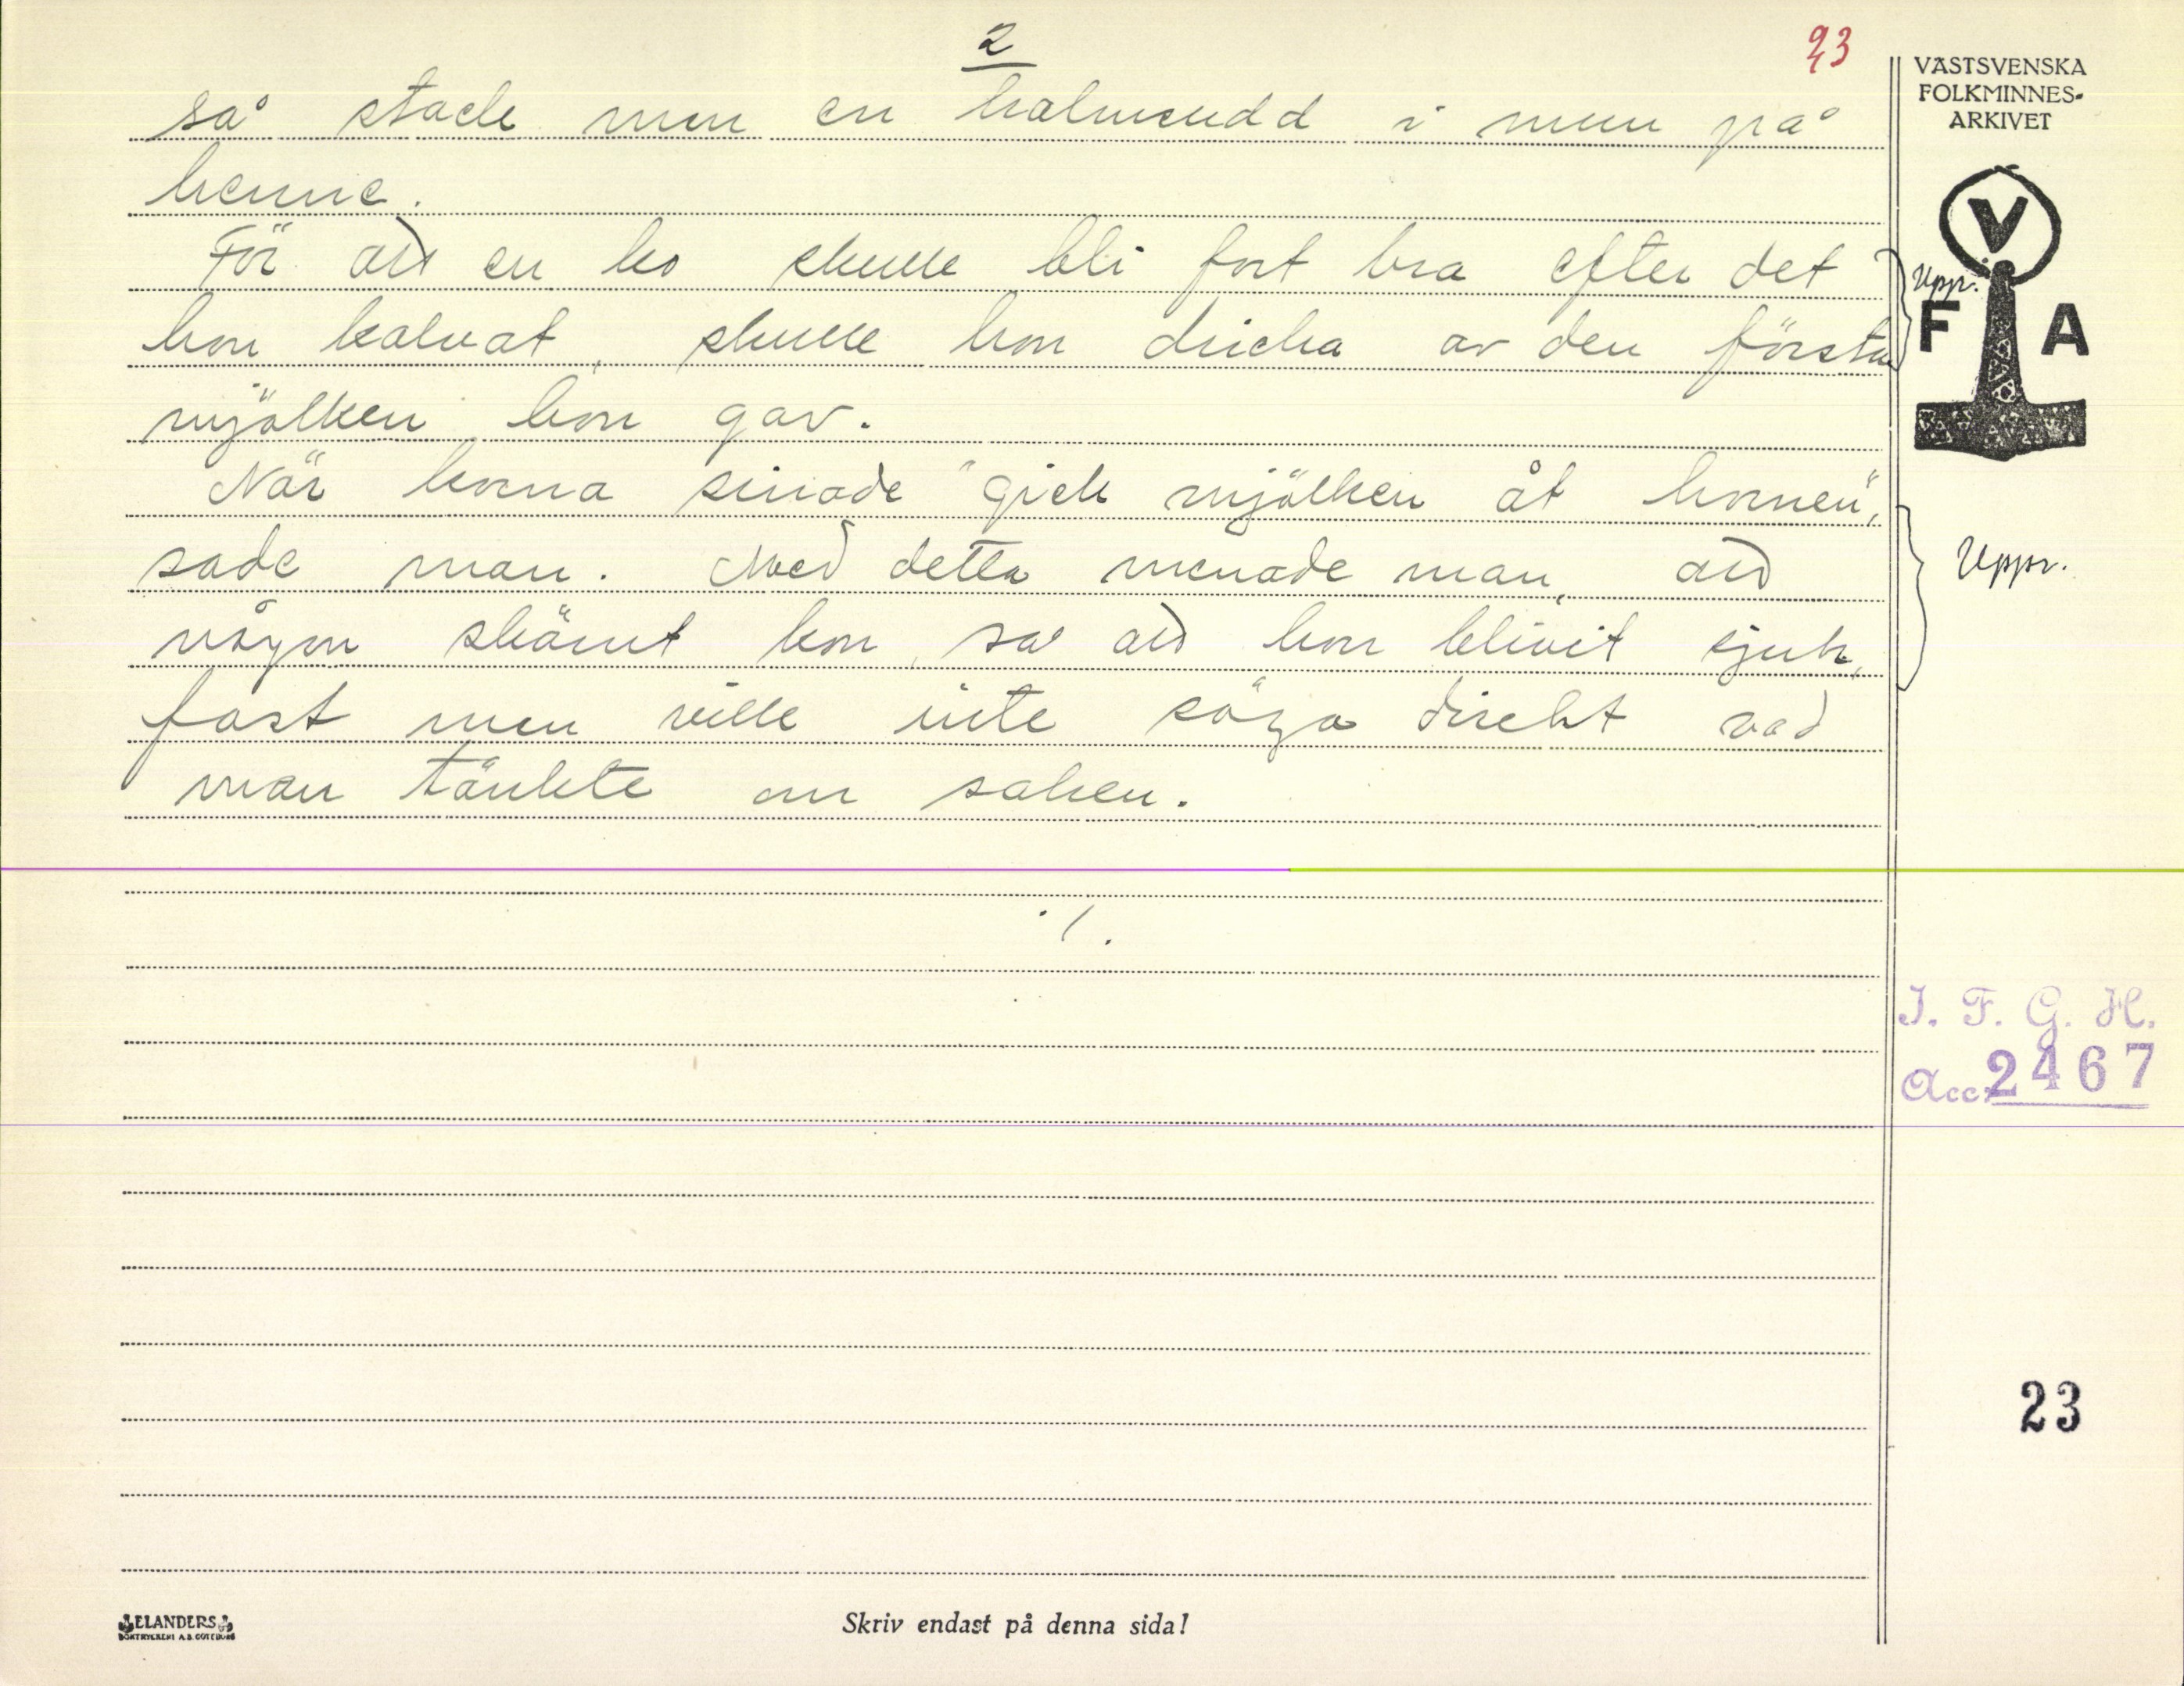 2
23
så stack man en halmsudd i mun på
henne.
För att en ko skulle bli fort bra efter det
hon kalvat, skulle hon dricka av den första
mjölken hon gav.
När korna sinade "gick mjölken åt hornen",
sade man. Med detta menade man, att
någon skämt kon, så att hon blivit sjuk,
fast man ville inte säga direkt vad
man tänkte om saken.
./.
VÄSTSVENSKA
FOLKMINNES-
ARKIVET
V
F A
Uppr.
Uppr.
I. F. G. H.
Acc. 2467
23
ELANDERS
BOKTRYCKERI A.B. GÖTEBORG
Skriv endast på denna sida!